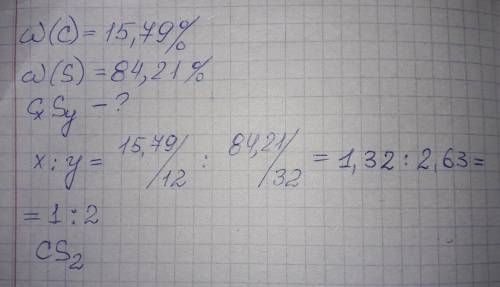 ω(C) = 15,79%
ω(S) = 84,21%
CxSy - ?
x : y = 15,79/12 : 84,21/32 = 1,32 : 2,63 =
= 1 : 2
CS₂